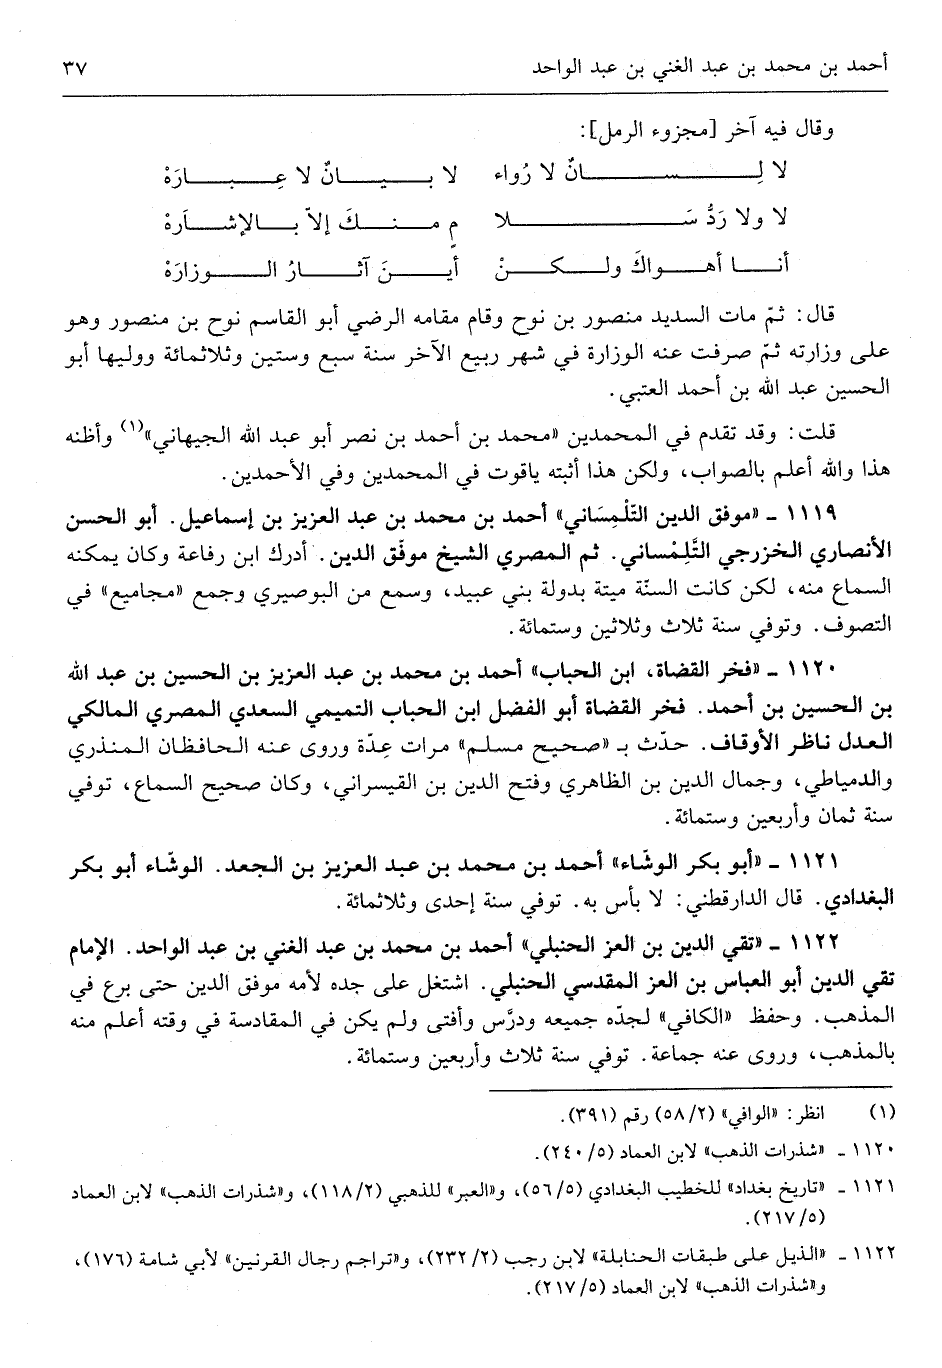 أحمد بن محمد بن عبد الغني بن عبد الواحد ٣٧
وقال فيه آخر [مجزوء الرمل]:
لا لِسانٌ لا رُواء لا بيانٌ لا عِبارَهْ
لا ولا رَدُّ سَلا مٍ منكَ إلاّ بالإشارهْ
أنا أهواكَ ولكنْ أينَ آثارُ الوزارَهْ
قال: ثمّ مات السديد منصور بن نوح وقام مقامه الرضي أبو القاسم نوح بن منصور وهو
على وزارته ثمّ صرفت عنه الوزارة في شهر ربيع الآخر سنة سبع وستين وثلاثمائة ووليها أبو
الحسين عبد الله بن أحمد العتبي.
قلت: وقد تقدم في المحمدين «محمد بن أحمد بن نصر أبو عبد الله الجيهاني»(١) وأظنه
هذا والله أعلم بالصواب، ولكن هذا أثبته ياقوت في المحمدين وفي الأحمدين.
١١١٩ ـ «موفق الدين التّلْمِسَاني» أحمد بن محمد بن عبد العزيز بن إسماعيل. أبو الحسن
الأنصاري الخزرجي التَّلِمْساني. ثم المصري الشيخ موفّق الدين. أدرك ابن رفاعة وكان يمكنه
السماع منه، لكن كانت السنّة ميتة بدولة بني عبيد، وسمع من البوصيري وجمع «مجاميع» في
التصوف. وتوفي سنة ثلاث وثلاثين وستمائة.
١١٢٠ ـ «فخر القضاة، ابن الحباب» أحمد بن محمد بن عبد العزيز بن الحسين بن عبد الله
بن الحسين بن أحمد. فخر القضاة أبو الفضل ابن الحباب التميمي السعدي المصري المالكي
العدل ناظر الأوقاف. حدّث بـ «صحيح مسلم» مرات عِدّة وروى عنه الحافظان المنذري
والدمياطي، وجمال الدين بن الظاهري وفتح الدين بن القيسراني، وكان صحيح السماع، توفي
سنة ثمان وأربعين وستمائة.
١١٢١ ـ «أبو بكر الوشّاء» أحمد بن محمد بن عبد العزيز بن الجعد. الوشّاء أبو بكر
البغدادي. قال الدارقطني: لا بأس به. توفي سنة إحدى وثلاثمائة.
١١٢٢ ـ «تقي الدين بن العز الحنبلي» أحمد بن محمد بن عبد الغني بن عبد الواحد. الإمام
تقي الدين أبو العباس بن العز المقدسي الحنبلي. اشتغل على جده لأمه موفق الدين حتى برع في
المذهب. وحفظ «الكافي» لجدّه جميعه ودرَّس وأفتى ولم يكن في المقادسة في وقته أعلم منه
بالمذهب، وروى عنه جماعة. توفي سنة ثلاث وأربعين وستمائة.
(١) انظر: «الوافي» (٥٨/٢) رقم (٣٩١).
١١٢٠ ـ «شذرات الذهب» لابن العماد (٢٤٠/٥).
١١٢١ ـ «تاريخ بغداد» للخطيب البغدادي (٥٦/٥)، و«العبر» للذهبي (١١٨/٢)، و«شذرات الذهب» لابن العماد
(٢١٧/٥).
١١٢٢ ـ «الذيل على طبقات الحنابلة» لابن رجب (٢٣٢/٢)، و«تراجم رجال القرنين» لأبي شامة (١٧٦)،
و«شذرات الذهب» لابن العماد (٢١٧/٥).